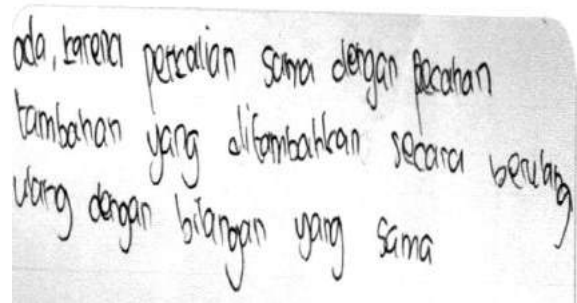 ada, karena perkalian sama dengan pecahan
tambahan yang ditambahkan secara berulang
ulang dengan bilangan yang sama